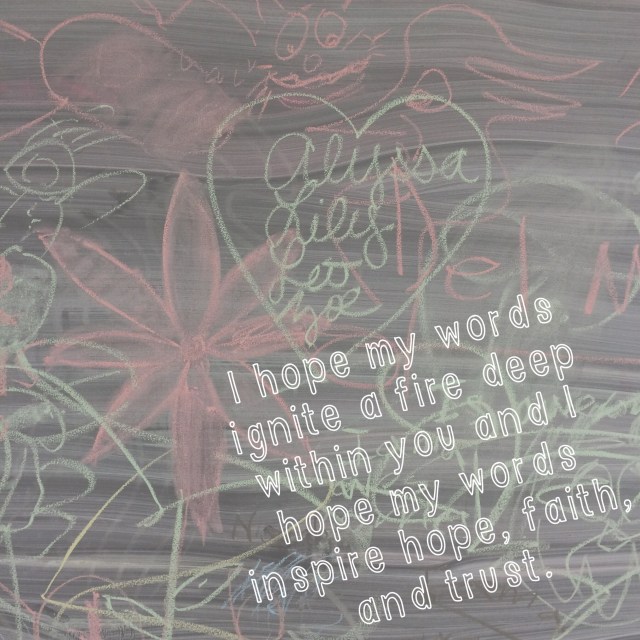 alyssa
Lily
Leo
zoe
I hope my words
ignite a fire deep
within you and I
hope my words
inspire hope, faith,
and trust.